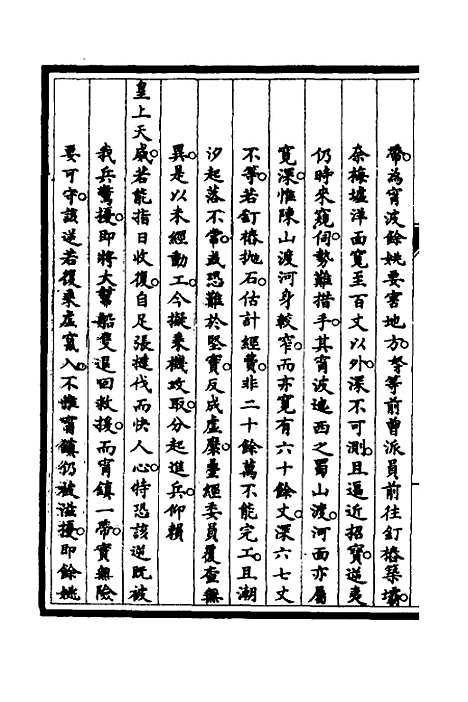 帶為甯波餘姚要害地方努等前曾派員前往釘樁築壩
奈梅墟洋面寬至百丈以外深不可測且逼近招寶逆夷
仍時來窺伺勢難措手其甯波迤西之蜀山渡河面亦屬
寬深惟陳山渡河身較窄而亦寬有六十餘丈深六七丈
不等若釘樁拋石估計經費非二十餘萬不能完工且潮
汐起落不常誠恐難於堅實反成虛糜疊經委員覆查無
異是以未經動工今擬乘機攻取分起進兵仰賴
皇上天威若能指日收復自足張撻伐而快人心特恐該逆既被
我兵驚擾即將大幫船隻退回救援而甯鎮一帶實無險
要可守該逆若復乘虛竄入不惟甯鎮仍被滋擾即餘姚